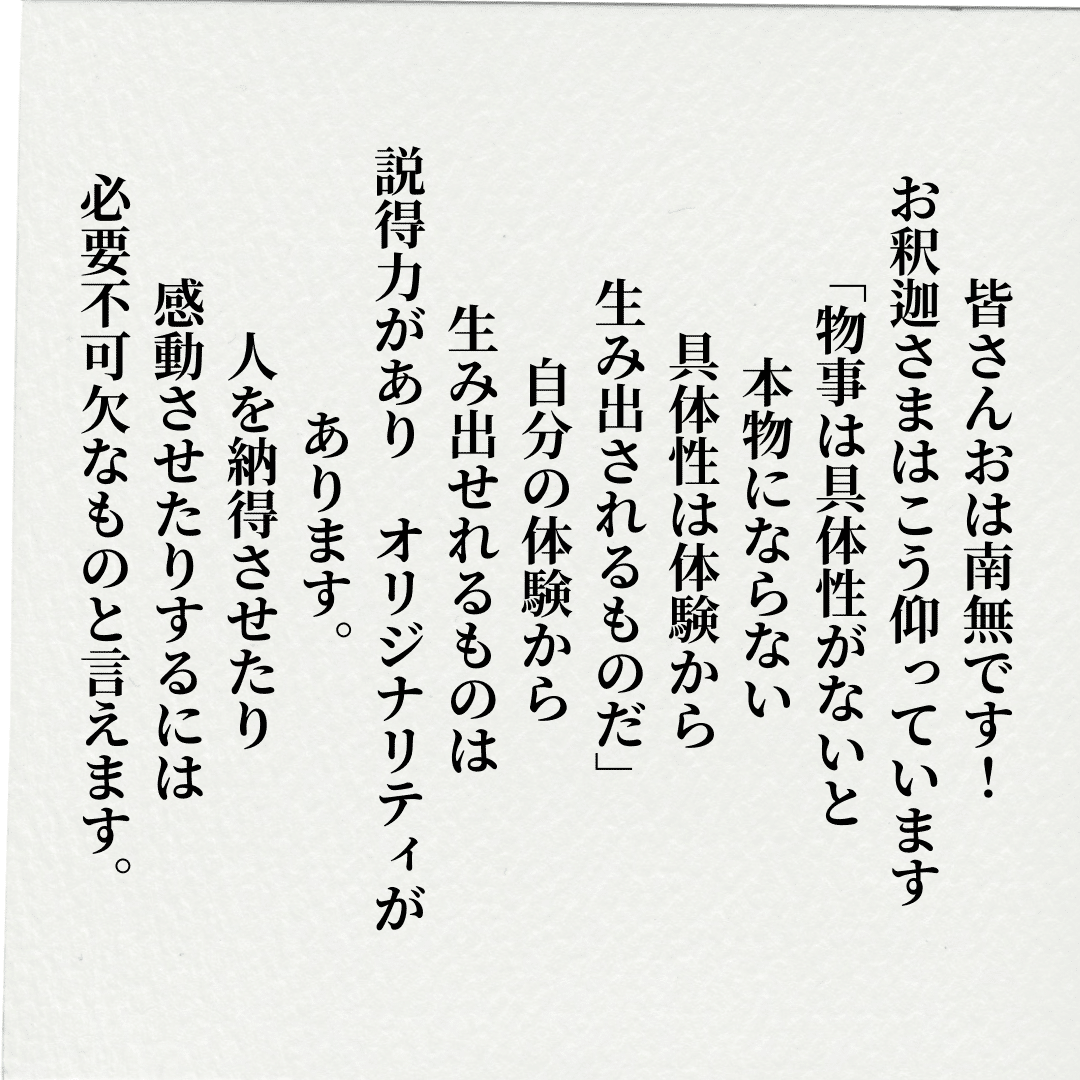 皆さんおは南無です！
お釈迦さまはこう仰っています
「物事は具体性がないと
本物にならない
具体性は体験から
生み出されるものだ」
自分の体験から
生み出せれるものは
説得力があり　オリジナリティが
あります。
人を納得させたり
感動させたりするには
必要不可欠なものと言えます。